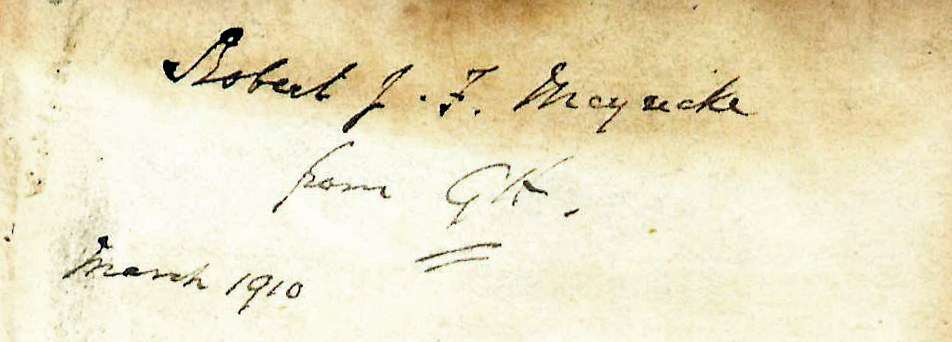 Robert J. F. Meyricke
from GK.
March 1910